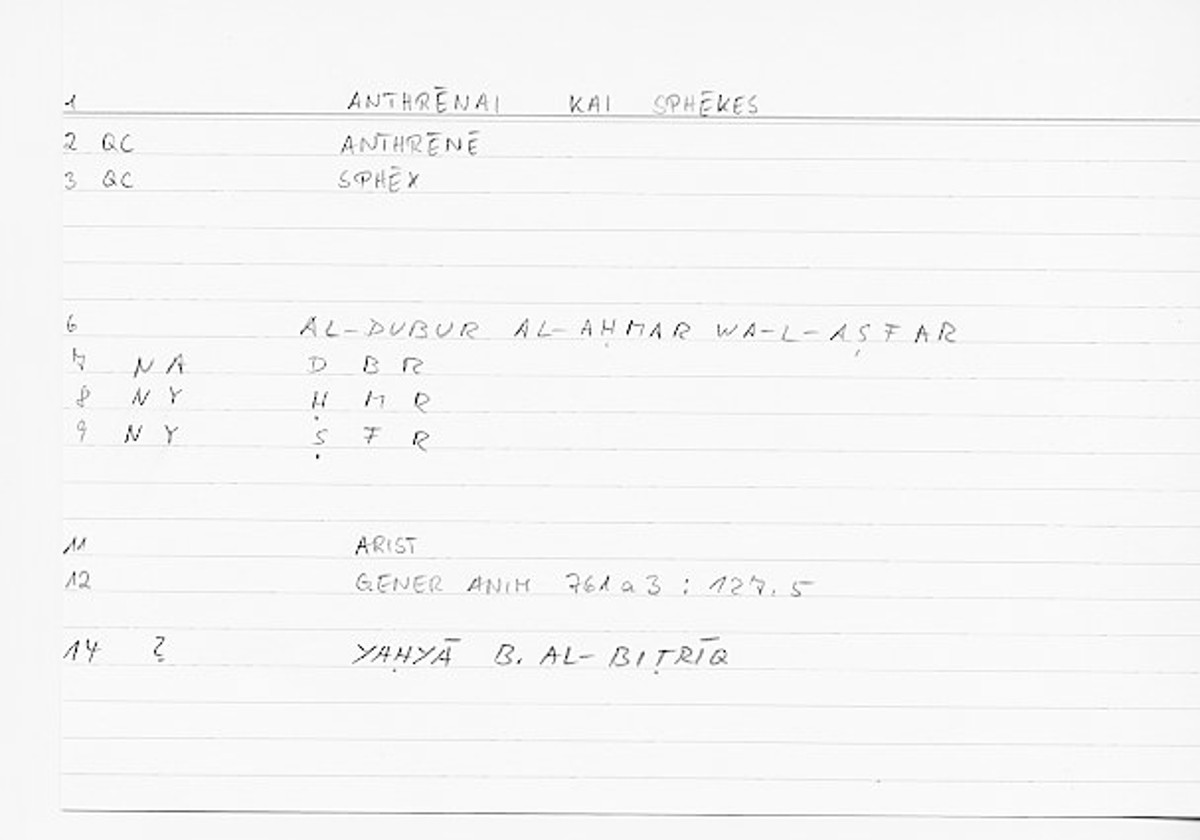 1 ANTHRĒNAI KAI SPHĒKES
2 QC ANTHRĒNĒ
3 QC SPHĒX
6 AL-DUBUR AL-AḤMAR WA-L-AṢFAR
7 NA D B R
8 NY Ḥ M R
9 NY Ṣ F R
11 ARIST
12 GENER ANIM 761a3 : 127.5
14 ? YAḤYĀ B. AL-BIṬRĪQ